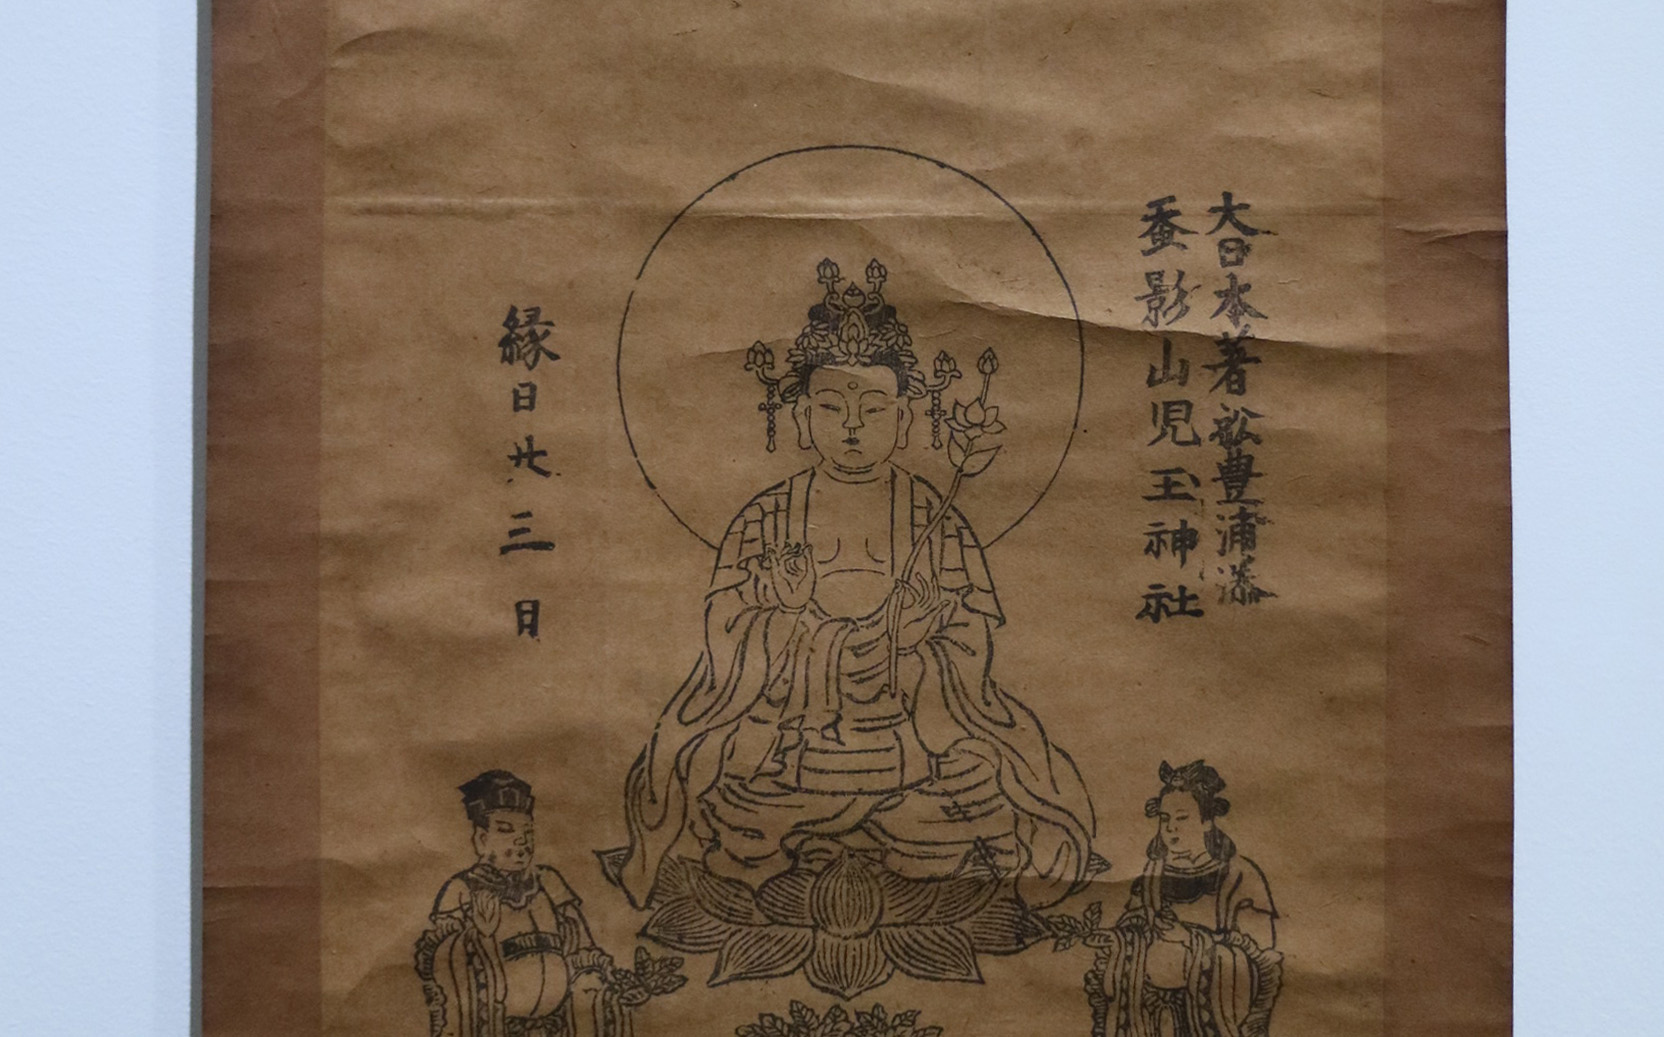 大日本著舩豊浦湊
蚕影山児玉神社
縁日廿三日